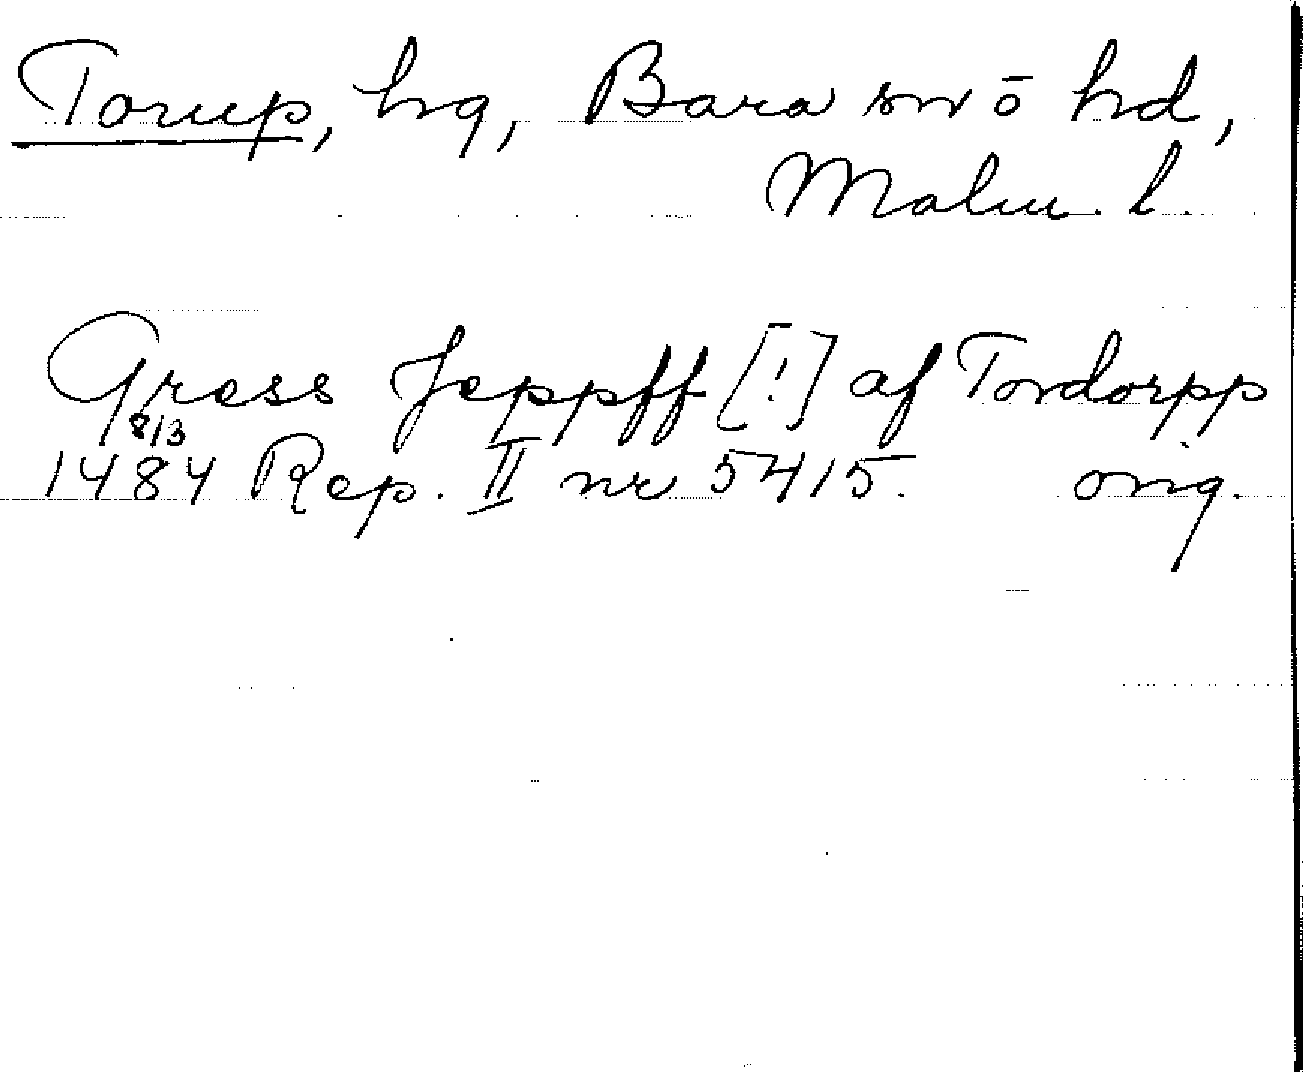 Torup, hg, Bara sn o hd,
Malm. l.
Gress Jeppff [!] af Tordorpp
8/3
1484 Rep. II nr 5415. orig.